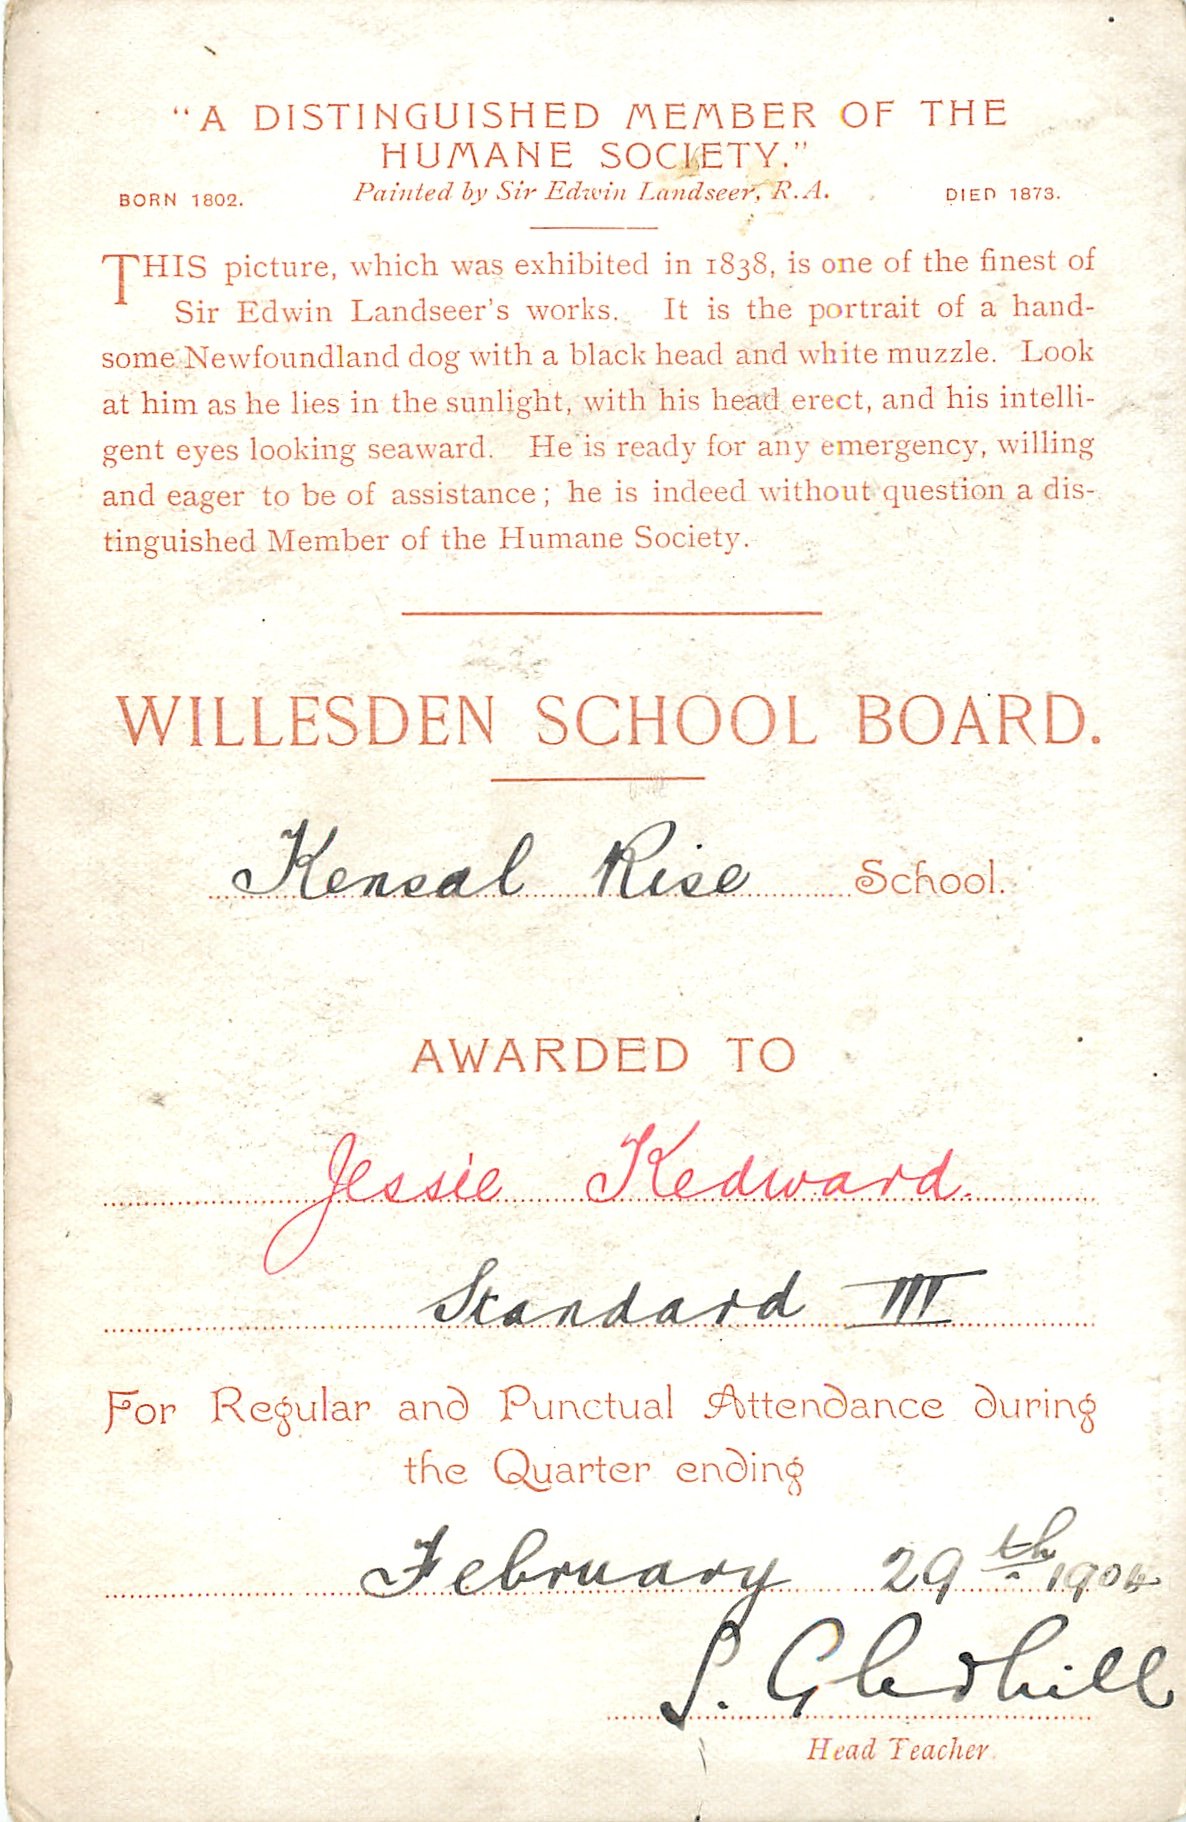 "A DISTINGUISHED MEMBER OF THE
HUMANE SOCIETY."
BORN 1802. Painted by Sir Edwin Landseer, R.A. DIED 1873.
THIS picture, which was exhibited in 1838, is one of the finest of
Sir Edwin Landseer's works. It is the portrait of a hand-
some Newfoundland dog with a black head and white muzzle. Look
at him as he lies in the sunlight, with his head erect, and his intelli-
gent eyes looking seaward. He is ready for any emergency, willing
and eager to be of assistance; he is indeed without question a dis-
tinguished Member of the Humane Society.
WILLESDEN SCHOOL BOARD.
Kensal Rise School.
AWARDED TO
Jessie Kedward.
Standard III
For Regular and Punctual Attendance during
the Quarter ending
February 29th 1904
S. Gledhill
Head Teacher.